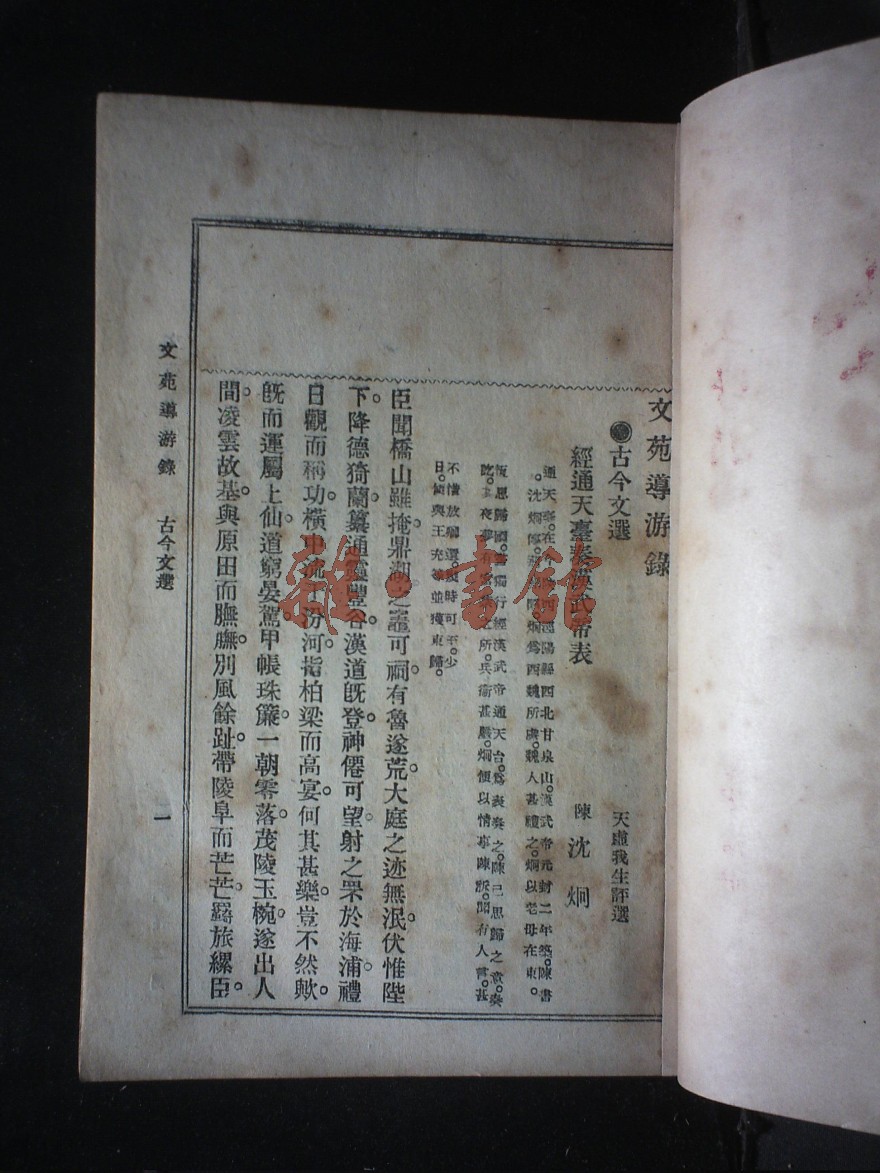 文苑導游錄
古今文選
天虛我生評選
經通天臺奏漢武帝表
陳 沈炯
通天臺。在今陝西涇陽縣西北甘泉山。漢武帝元封二年築。陳書
。沈炯傳。炯爲西魏所虜。魏人甚禮之。炯以老母在東。
恆思歸國。嘗獨行經漢武帝通天台。爲表奏之。陳己思歸之意。奏
訖。其夜夢有宮禁之所。兵衛甚嚴。炯便以情事陳訴。聞有人言。甚
不惜放卿還。幾時可至。少
日。便與王克等並獲東歸。
臣聞橋山雖掩鼎湖之竈可祠有魯遂荒大庭之迹無泯。伏惟陛
下。降德猗蘭。纂通靈豐谷。漢道旣登。神僊可望。射之罘於海浦。禮
日觀而稱功。橫中流於汾河。指柏梁而高宴。何其甚樂。豈不然歟。
旣而運屬上仙。道窮晏駕。甲帳珠簾。一朝零落。茂陵玉椀。遂出人
間。凌雲故基。與原田而膴膴。別風餘趾。帶陵阜而芒芒。羇旅縲臣。
文苑導游錄 古今文選
一
雜·書館